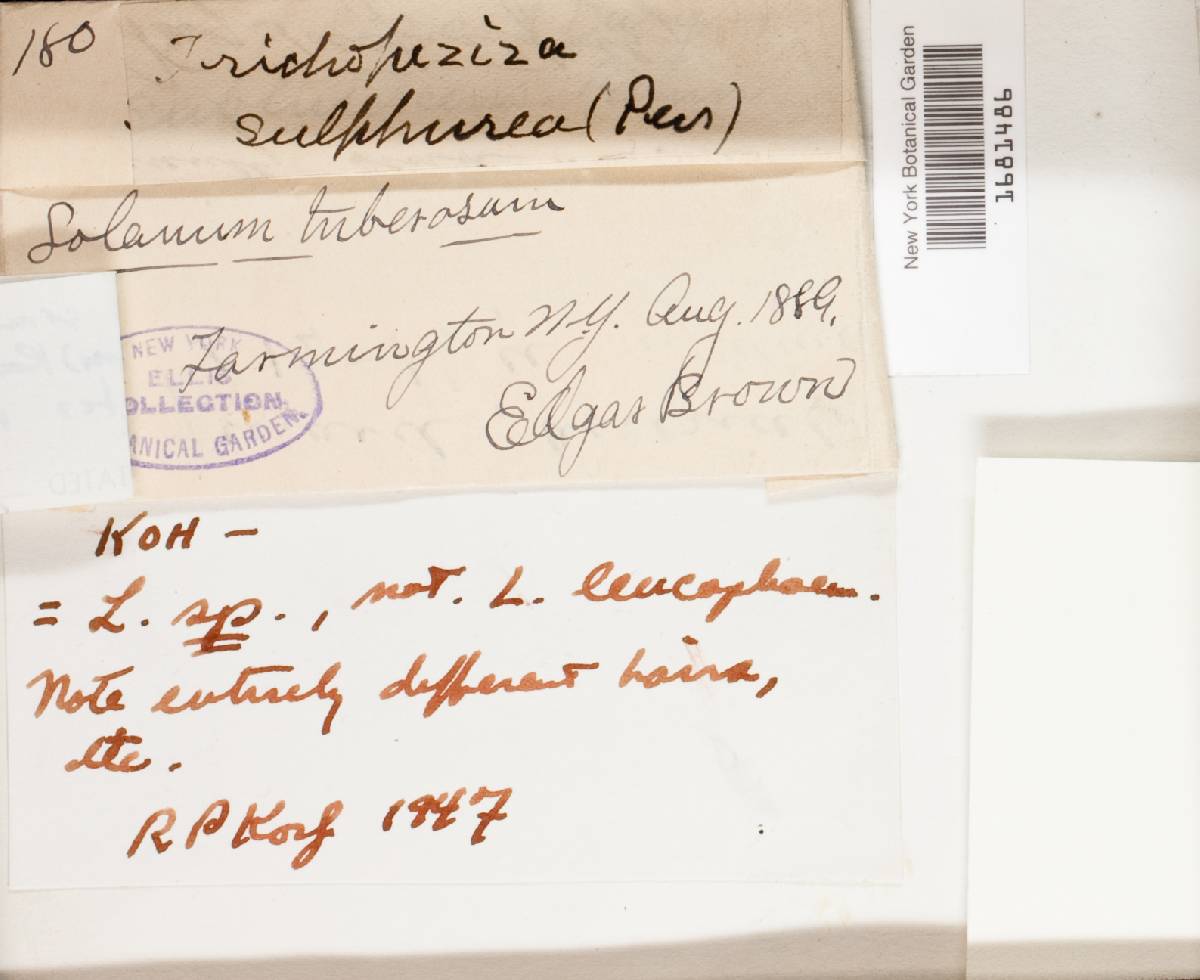 180
Trichopeziza
sulphurea (Pers)
Solanum tuberosum
Farmington N.Y. Aug. 1889.
Edgar Brown
NEW YORK
ELLIS
OLLECTION
ANICAL GARDEN.
KOH –
= L. sp., not. L. leucophaea.
Note entirely different hairs,
etc.
R P Korf 1947
New York Botanical Garden
1681486